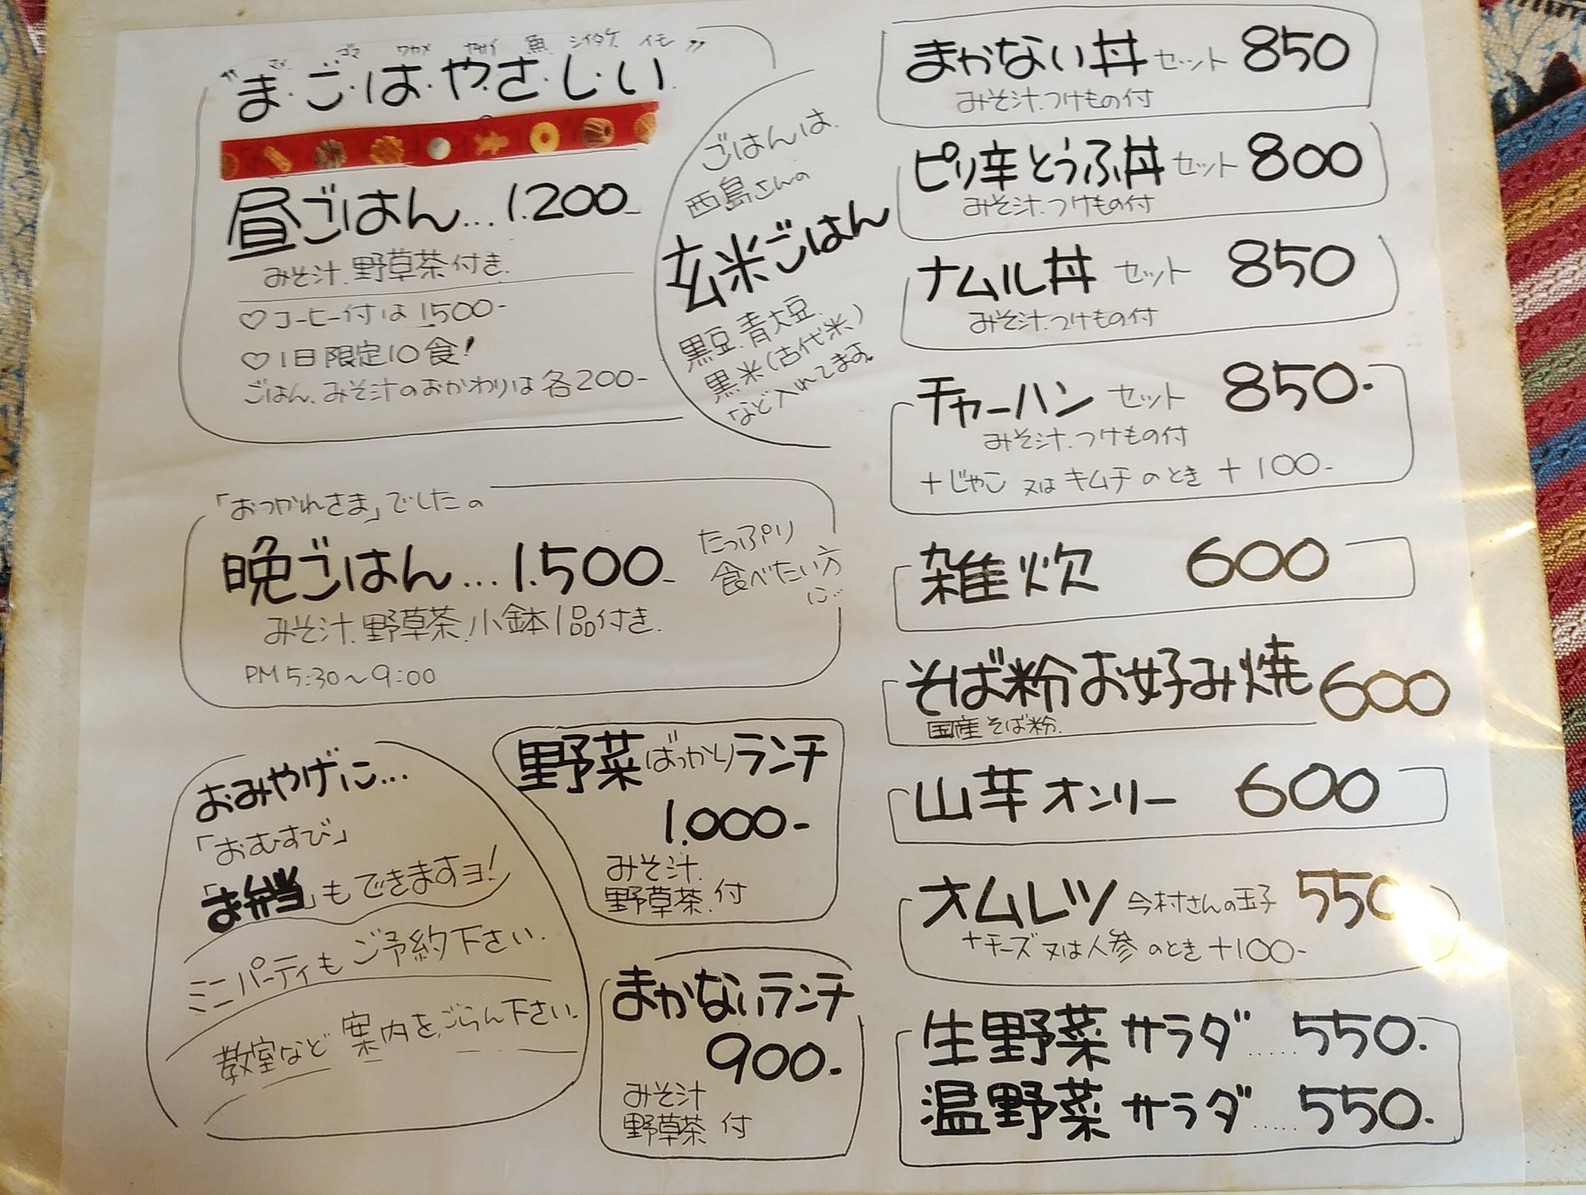 マメ ゴマ ワカメ ヤサイ 魚 シイタケ イモ
"ま・ご・は・や・さ・し・い"
昼ごはん…1.200-
みそ汁.野草茶付き.
♡コーヒー付は1500-
♡1日限定10食!
ごはん、みそ汁のおかわりは各200-
ごはんは、
西島さんの
玄米ごはん
黒豆.青大豆.
黒米(古代米)
など入れてます。
「おつかれさま」でしたの
晩ごはん…1.500-
みそ汁.野草茶.小鉢1品付き.
PM5:30~9:00
たっぷり
食べたい方
に…
おみやげに…
「おむすび」
「お弁当」もできますヨ!
ミニパーティもご予約下さい.
教室など案内をごらん下さい.
野菜ばっかりランチ
1.000-
みそ汁.
野草茶.付
まかないランチ
900-
みそ汁
野草茶 付
まかない丼セット 850
みそ汁.つけもの付
ピリ辛とうふ丼セット 800
みそ汁.つけもの付
ナムル丼 セット 850
みそ汁.つけもの付
チャーハン セット 850-
みそ汁.つけもの付
+じゃこ 又はキムチのとき +100-
雑炊 600
そば粉お好み焼 600
国産そば粉.
山芋オンリー 600
オムレツ 今村さんの玉子 550
+チーズ又は人参のとき+100-
生野菜サラダ……550.
温野菜サラダ……550.